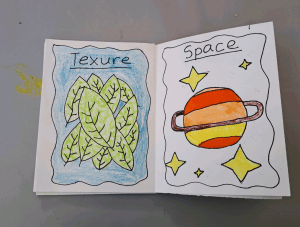 Texure
Space